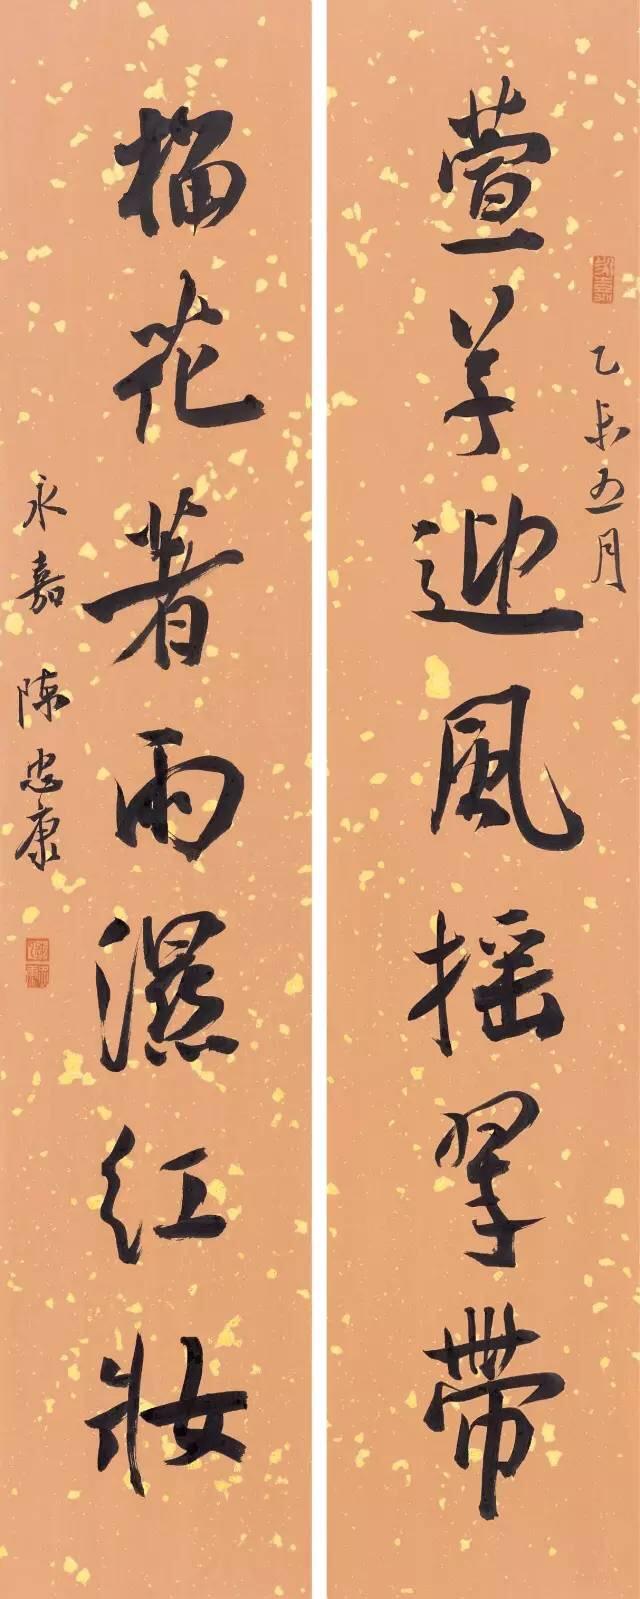 萱草迎風摇翠帶
乙未五月
榴花著雨濕紅妝
永嘉陳忠康